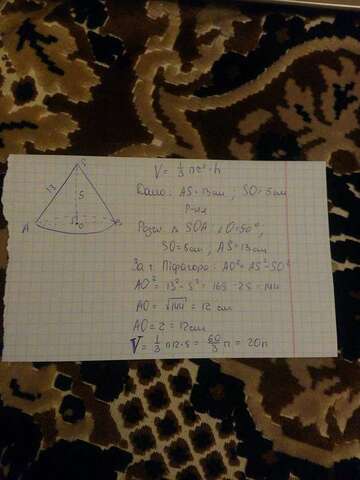 V = 1/3 πr² · h
Дано: AS = 13см; SO = 5см
Р-ня
Розгл. Δ SOA: ∠O = 90°,
SO = 5см, AS = 13см.
За т. Піфагора: AO² = AS² - SO²
AO² = 13² - 5² = 169 - 25 = 144
AO = √144 = 12 см
AO = 2 = 12см
V = 1/3 π12 · 5 = 60/3 π = 20π
13
5
A
O
B